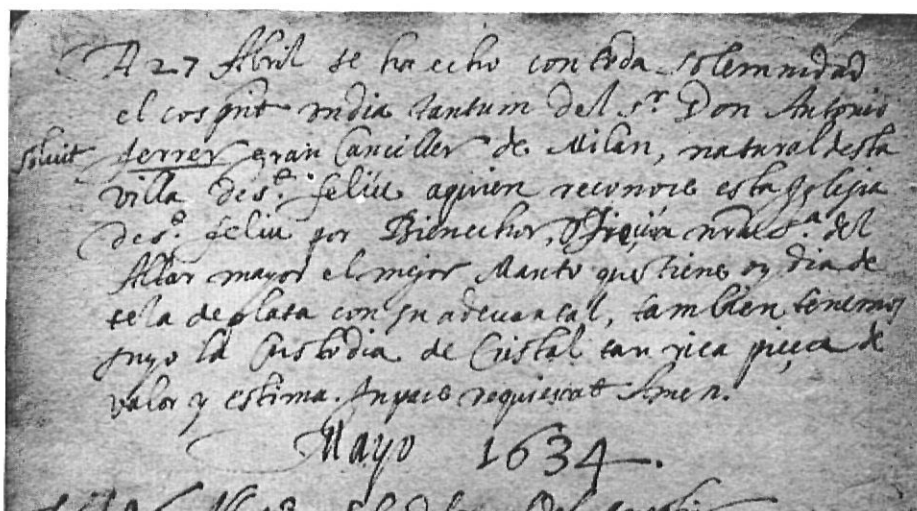 A 27 Abril se ha echo con toda solemnidad
el cos pnt mdia tantum del s.r Don Antonio
soluit ferrer gran Canciller de Milan, natural desta
villa de s.t feliu aquien reconoce esta Iglesia
de s.t feliu por Bienechor, nra s.a del
Altar mayor el mejor Manto que tiene oy dia de
tela de plata con su adevantal, tambien tenemos
suyo la Custodia de Cristal tan rica pieça de
valor y estima. In pace requiescat Amen.
Mayo 1634.